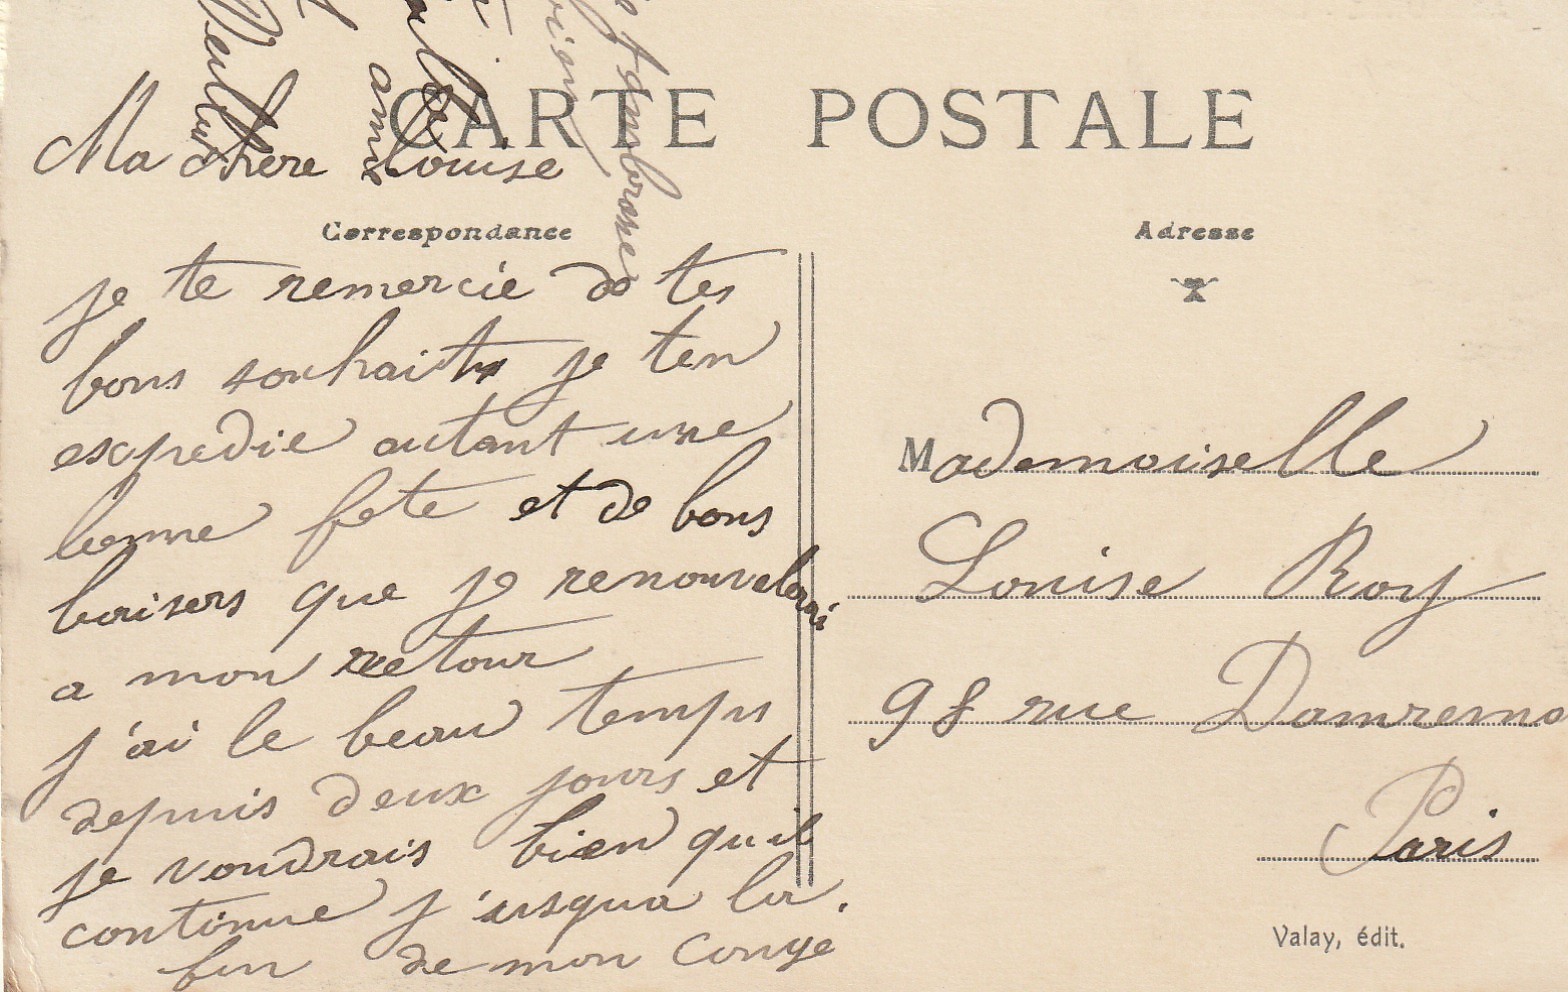 CARTE POSTALE
Ma chere Louise
Correspondance
je te remercie de tes
bons souhaits je ten
expedie autant une
bonne fete et de bons
baisers que je renouvelerai
a mon retour
j'ai le beau temps
depuis deux jours et
je voudrais bien quil
continue j'usqua la
fin de mon conge
amie
t'embrasse
bien
Adresse
Mademoiselle
Louise Roy
98 rue Damremo
Paris
Valay, édit.